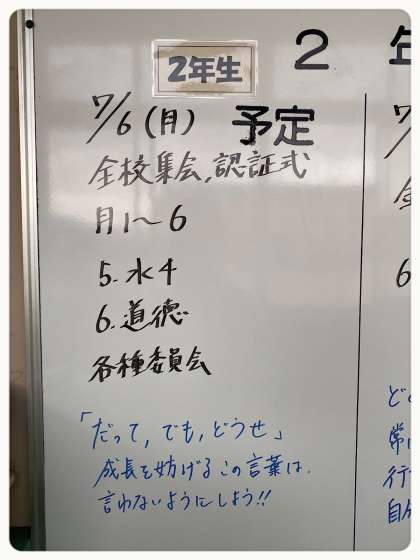 2年生
2
予定
7/6(月)
全校集会,認証式
月1〜6
5.水4
6.道徳
各種委員会
「だって,でも,どうせ」
成長を妨げるこの言葉は、
言わないようにしよう!!
6
ど
常
行
自分